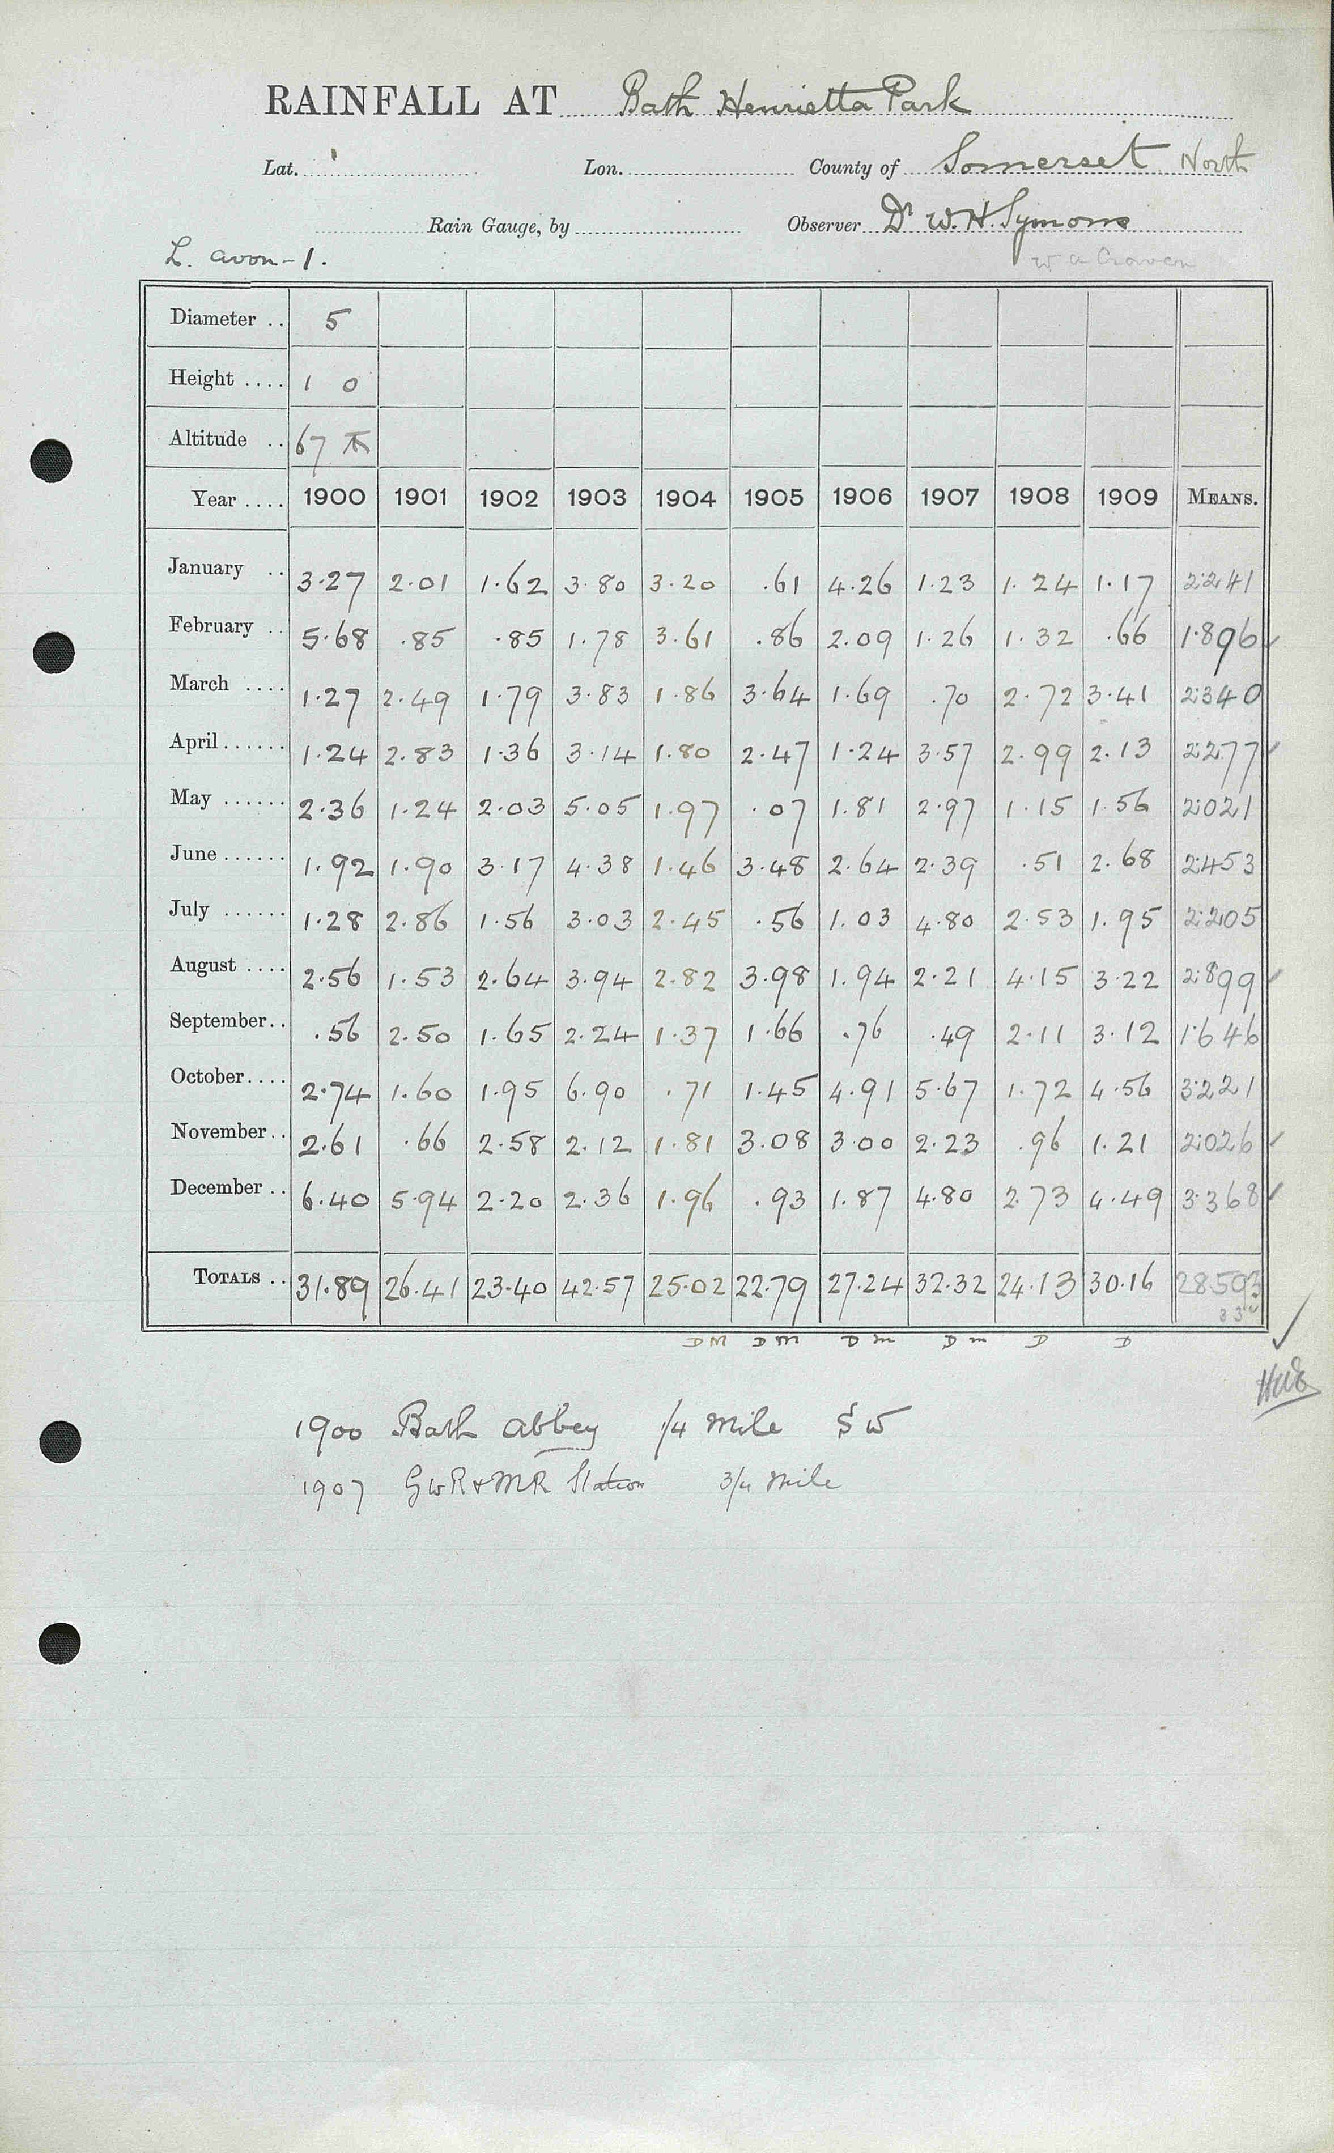 RAINFALL AT Bath Henrietta Park
Lat. Lon. County of Somerset North
Rain Gauge, by Observer Dr W. H. Symons
L. avon - 1. W A Craven
Diameter .. 5
Height .... 1 0
Altitude .. 67
Year .... 1900 1901 1902 1903 1904 1905 1906 1907 1908 1909 MEANS.
January .. 3.27 2.01 1.62 3.80 3.20 .61 4.26 1.23 1.24 1.17 2.241
February .. 5.68 .85 .85 1.78 3.61 .86 2.09 1.26 1.32 .66 1.896 ✓
March .... 1.27 2.49 1.79 3.83 1.86 3.64 1.69 .70 2.72 3.41 2.340
April ...... 1.24 2.83 1.36 3.14 1.80 2.47 1.24 3.57 2.99 2.13 2.277 ✓
May ...... 2.36 1.24 2.03 5.05 1.97 .07 1.81 2.97 1.15 1.56 2.021
June ...... 1.92 1.90 3.17 4.38 1.46 3.48 2.64 2.39 .51 2.68 2.453
July ...... 1.28 2.86 1.56 3.03 2.45 .56 1.03 4.80 2.53 1.95 2.205
August .... 2.56 1.53 2.64 3.94 2.82 3.98 1.94 2.21 4.15 3.22 2.899 ✓
September .. .56 2.50 1.65 2.24 1.37 1.66 .76 .49 2.11 3.12 1.646
October .... 2.74 1.60 1.95 6.90 .71 1.45 4.91 5.67 1.72 4.56 3.221
November .. 2.61 .66 2.58 2.12 1.81 3.08 3.00 2.23 .96 1.21 2.026 ✓
December .. 6.40 5.94 2.20 2.36 1.96 .93 1.87 4.80 2.73 4.49 3.368 ✓
TOTALS .. 31.89 26.41 23.40 42.57 25.02 22.79 27.24 32.32 24.13 30.16 28.593
D M D M D m D m D D
1900 Bath Abbey 1/4 mile S W
1907 GWR & MR Station 3/4 mile